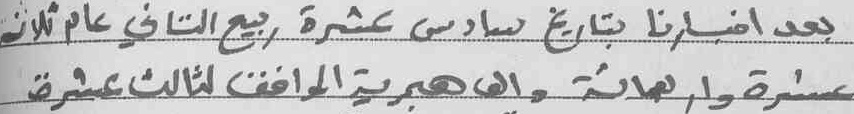 بعد اخبارنا بتاريخ سادس عشرة ربيع الثاني عام ثلاثة
عشرة واربعمائة والف هجرية الموافق لثالث عشرة